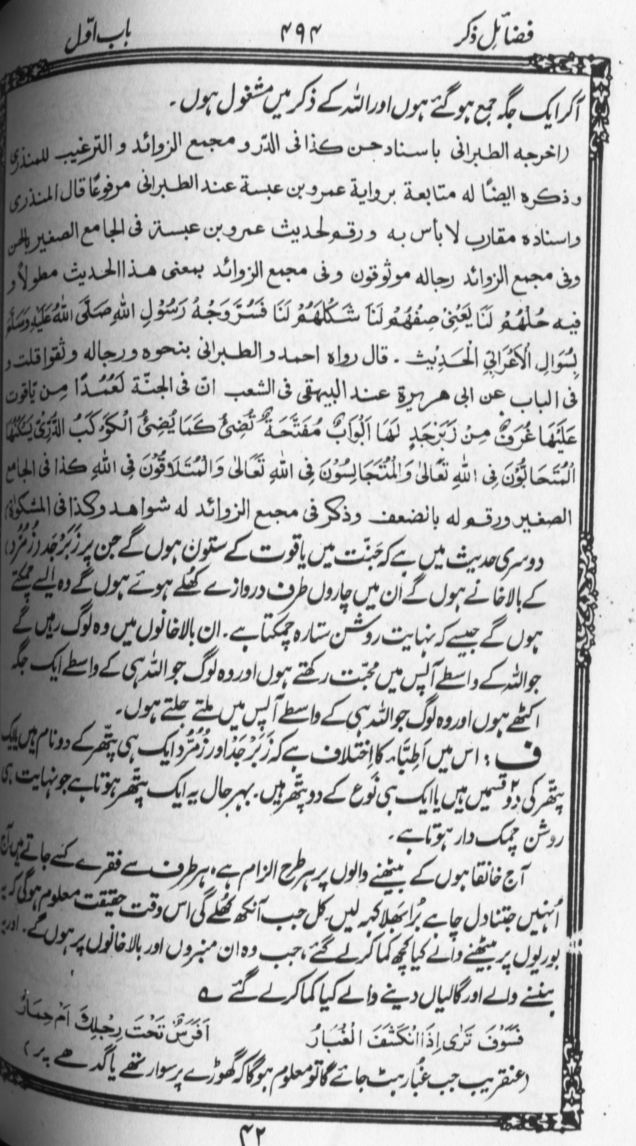 فضائل ذکر ۴۹۴ باب اوّل
آکر ایک جگہ جمع ہوگئے ہوں اور اللہ کے ذکر میں مشغول ہوں۔
(اخرجه الطبرانی باسناد حسن کذا فی الدّر و مجمع الزوائد و الترغیب للمنذری
و ذکره ایضًا له متابعة بروایة عمرو بن عبسة عند الطبرانی مرفوعًا قال المنذری
و اسناده مقارب لا بأس به و رقم لحدیث عمرو بن عبسة فی الجامع الصغیر بالحسن
وفی مجمع الزوائد رجاله موثوقون وفی مجمع الزوائد بمعنی هذا الحدیث مطولاً و
فیه حُلْهُمْ لَنَا یَعْنِیْ صِفْهُمْ لَنَا شَکِّلْهُمْ لَنَا فَسُرَّ وَجْهُ رَسُوْلِ اللهِ صَلَّی اللهُ عَلَیْهِ وَسَلَّمَ
بِسُوَالِ الْاَعْرَابِیِّ الْحَدِیْثَ ۔ قال رواه احمد و الطبرانی بنحوه و رجاله وثقوا قلت و
فی الباب عن ابی هریرة عند البیهقی فی الشعب انّ فی الجنّة لَعُمُدًا مِنْ یَّاقوت
عَلَیْهَا غُرَفٌ مِنْ زَبَرْجَدٍ لَهَا اَبْوَابٌ مُفَتَّحَةٌ تُضِیْئُ کَمَا یُضِیْئُ الْکَوْکَبُ الدُّرِّیُّ یَسْکُنُهَا
الْمُتَحَابُّوْنَ فِی اللهِ تَعَالٰی وَالْمُتَجَالِسُوْنَ فِی اللهِ تَعَالٰی وَالْمُتَلَاقُوْنَ فِی اللهِ کذا فی الجامع
الصغیر و رقم له بالضعف و ذکر فی مجمع الزوائد له شواهد و کذا فی المشکوٰة)
دوسری حدیث میں ہے کہ جنّت میں یاقوت کے ستون ہوں گے جن پر زَبَرْجَد (زُمُرُّد)
کے بالاخانے ہوں گے اُن میں چاروں طرف دروازے کُھلے ہوئے ہوں گے وہ ایسے چمکتے
ہوں گے جیسے کہ نہایت روشن ستارہ چمکتا ہے۔ ان بالاخانوں میں وہ لوگ رہیں گے
جو اللہ کے واسطے آپس میں محبّت رکھتے ہوں اور وہ لوگ جو اللہ ہی کے واسطے ایک جگہ
اکٹھے ہوں اور وہ لوگ جو اللہ ہی کے واسطے آپس میں ملتے جلتے ہوں۔
ف: اس میں اَطِبّاء کا اِختلاف ہے کہ زَبَرْجَد اور زُمُرُّد ایک ہی پتّھر کے دو نام ہیں یا ایک
پتّھر کی دو ۲ قسمیں ہیں یا ایک ہی نَوع کے دو پتّھر ہیں۔ بہر حال یہ ایک پتّھر ہوتا ہے جو نہایت ہی
روشن چمک دار ہوتا ہے۔
آج خانقاہوں کے بیٹھنے والوں پر ہر طرح الزام ہے، ہر طرف سے فقرے کسے جاتے ہیں، آج
اُنہیں جتنا دل چاہے بُرا بَھلا کہہ لیں، کل جب آنکھ کُھلے گی اس وقت حقیقت معلوم ہوگی کہ یہ
بوریوں پر بیٹھنے والے کیا کچھ کما کر لے گئے، جب وہ ان منبروں اور بالاخانوں پر ہوں گے۔ اور یہ
ہنسنے والے اور گالیاں دینے والے کیا کما کر لے گئے ؎
فَسَوْفَ تَرٰی اِذَا انْکَشَفَ الْغُبَارُ اَفَرَسٌ تَحْتَ رِجْلِكَ اَمْ حِمَارُ
(عنقریب جب غُبار ہٹ جائے گا تو معلوم ہوگا کہ گھوڑے پر سوار تھے یا گدھے پر)
۴۲